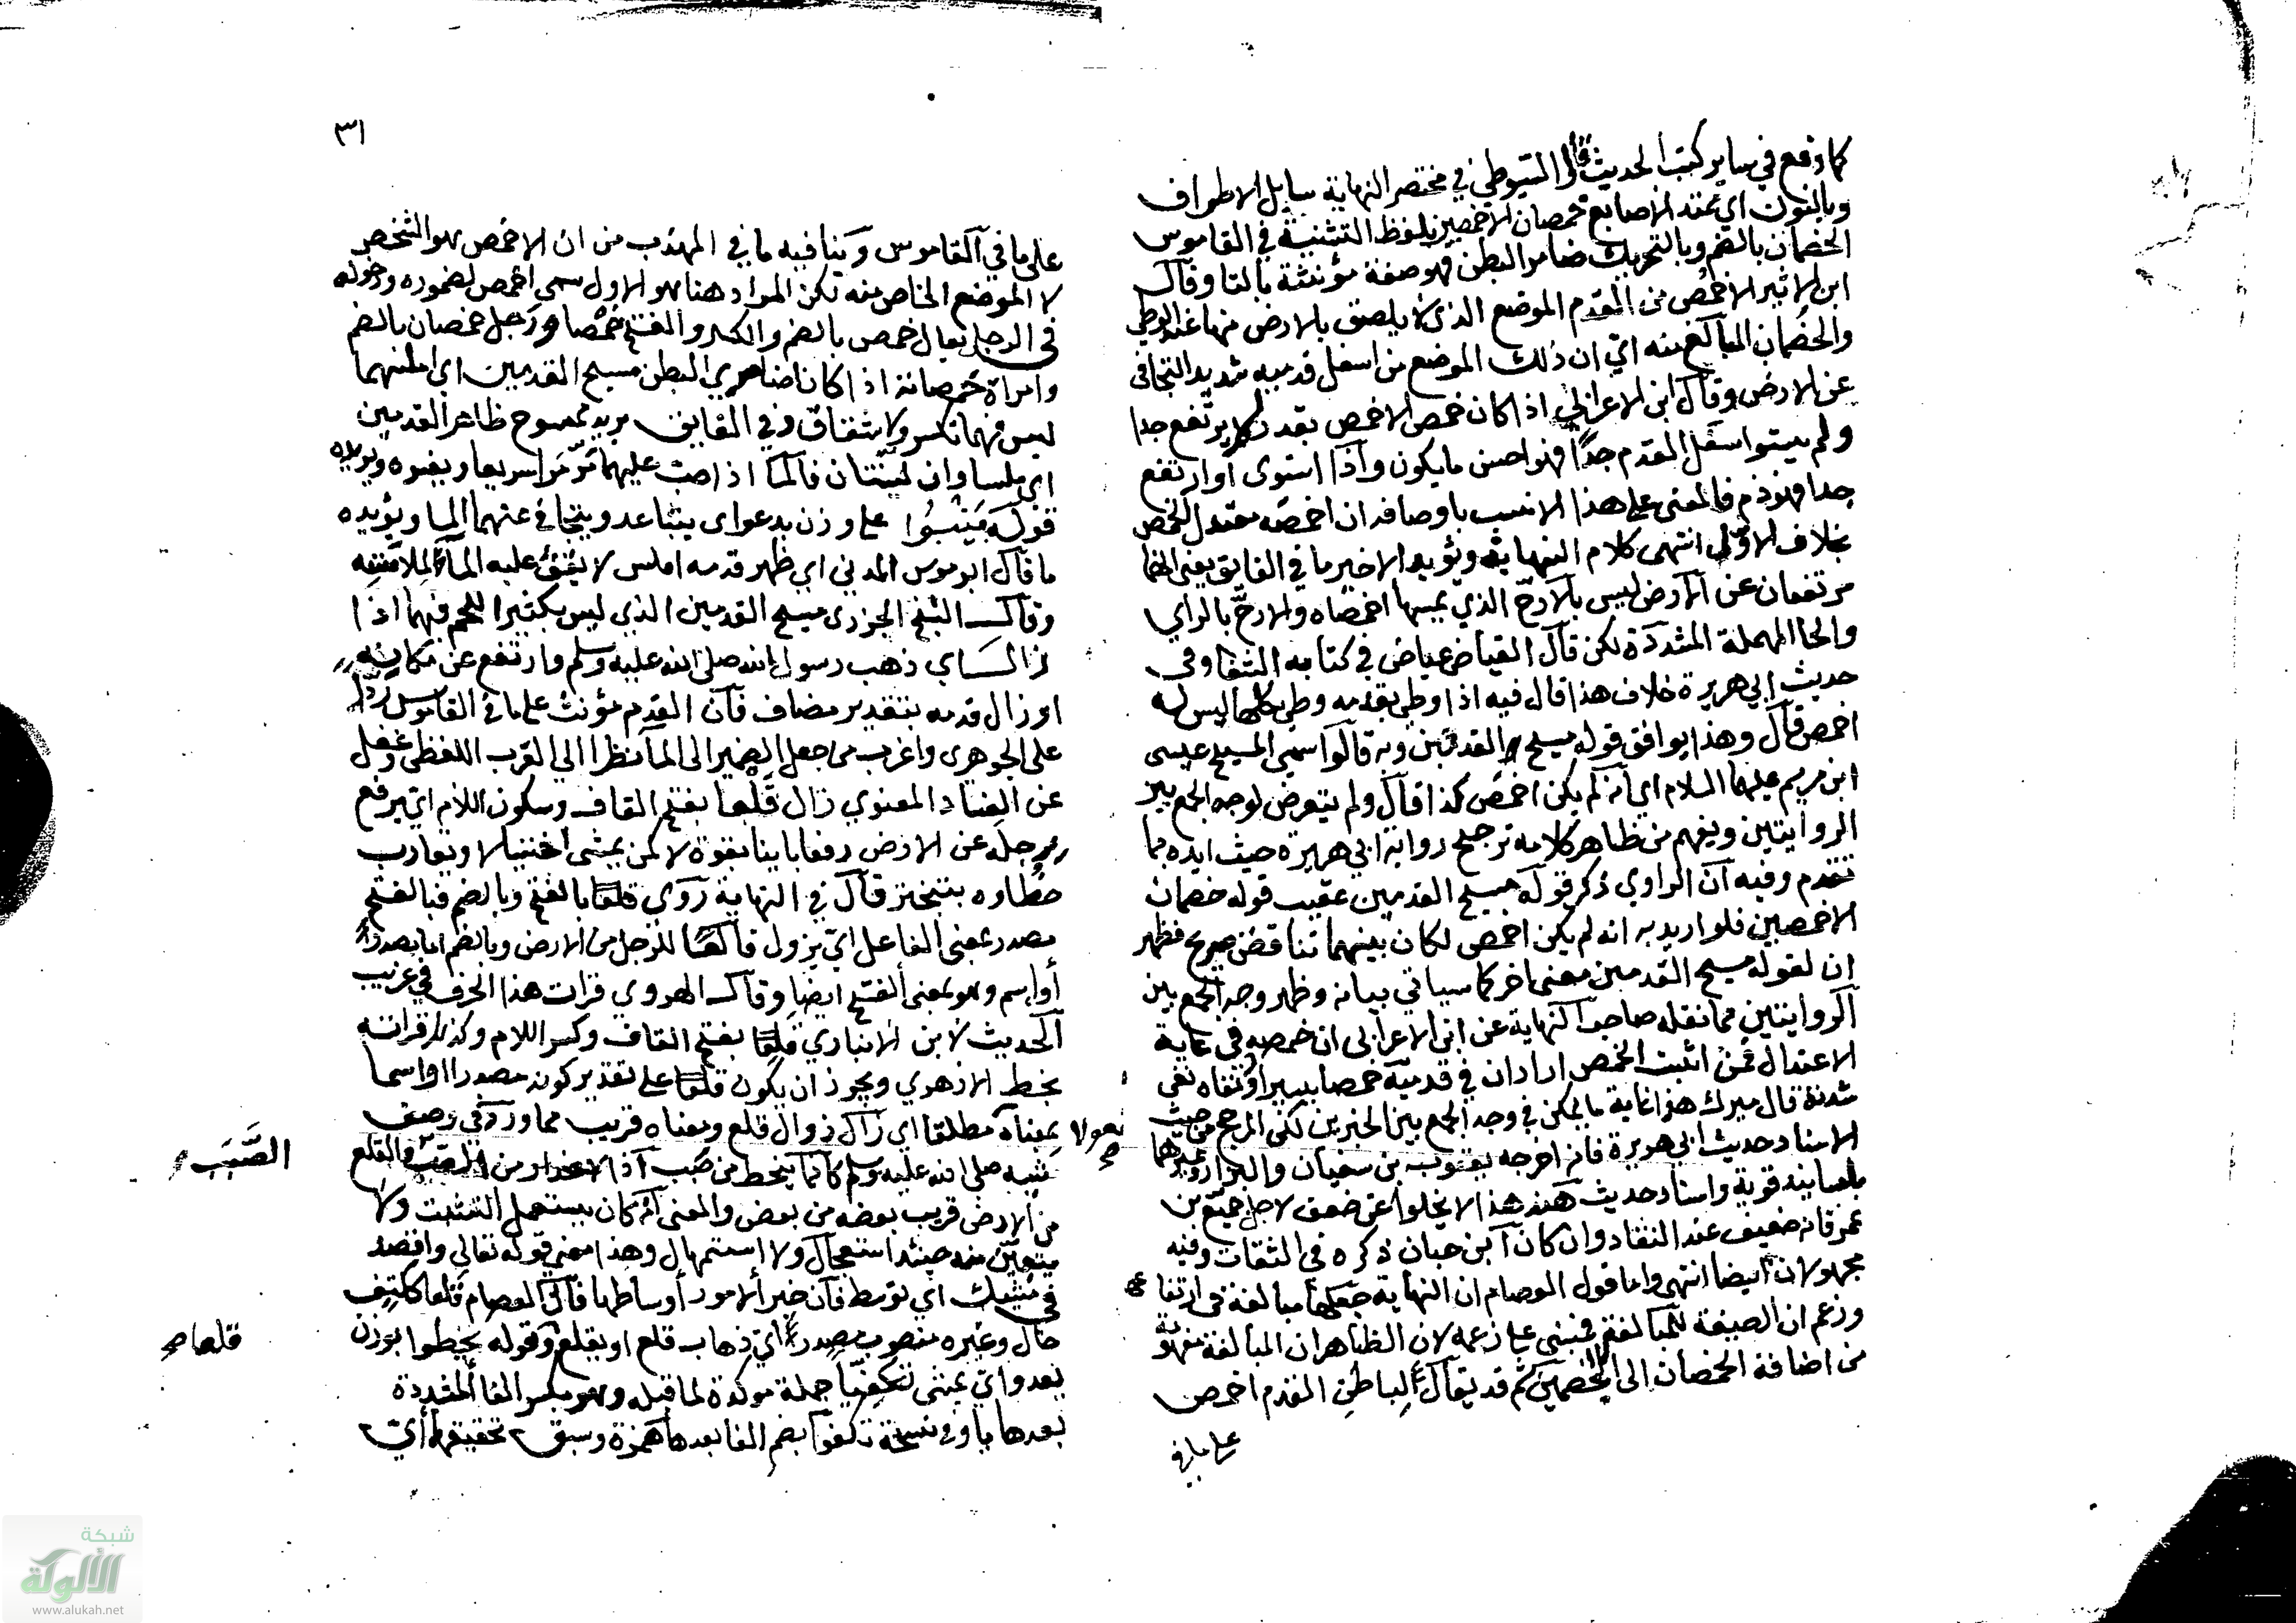 كما وقع في ساير كتب الحديث قال السيوطي في مختصر النهاية سايل الاطراف
وبالنون اي ممتد الاصابع خمصان الاخمصين بلفظ التثنية في القاموس
الخمصان بالضم وبالتحريك ضامر البطن فهو صفة مؤنثة بالتا وقال
ابن الاثير الاخمص من القدم الموضع الذي لا يلصق بالارض منها عند الوطي
والخمصان المبالغ منه اي ان ذلك الموضع من اسفل قدميه شديد التجافي
عن الارض وقال ابن الاعرابي اذا كان خمص الاخمص بقدر لم يرتفع جدا
ولم يستو اسفل القدم جدًّا فهو احسن ما يكون واذا استوى او ارتفع
جدا فهو ذم فالمعنى على هذا الانسب باوصافه ان اخمصه معتدل الخمص
بخلاف الاول انتهى كلام النهاية ويؤيد الاخير ما في الفايق يعني انهما
مرتفعان عن الارض ليس بالارحّ الذي يمسها اخمصاه والارحّ بالراي
والحا المهملة المشددة لكن قال القاضي عياض في كتابه الشفا وفي
حديث ابي هريرة خلاف هذا قال فيه اذا وطي بقدمه وطي بكلها ليس له
اخمص قال وهذا يوافق قوله مسيح القدمين وبه قالوا سمي المسيح عيسى
ابن مريم عليهما السلام اي انه لم يكن اخمص كذا قال ولم يتعرض لوجه الجمع بين
الروايتين ويفهم من ظاهر كلامه ترجيح رواية ابي هريرة حيث ايده بما
تقدم وفيه ان الراوي ذكر قوله مسيح القدمين عقيب قوله خمصان
الاخمصين فلو اريد به انه لم يكن اخمص لكان بينهما تناقض صريح فظهر
ان لقوله مسيح القدمين معنى اخر كما سياتي بيانه وظهر وجه الجمع بين
الروايتين مما نقله صاحب النهاية عن ابن الاعرابي ان خمصه في غاية
الاعتدال فمن اثبت الخمص اراد ان في قدميه خمصا يسيرا ومن نفاه نفى
شدته قال ميرك هذا غاية ما يمكن في وجه الجمع بين الخبرين لكن المرجح من حيث
الاسناد حديث ابي هريرة فانه اخرجه يعقوب بن سفيان والبزار وغيرهما
باسانيد قوية واسناد حديث هند هذا لا يخلوا عن ضعف لاجل جميع بن
عمر فانه ضعيف عند النقاد وان كان ابن حبان ذكره في الثقات وفيه
مجهولان ايضا انتهى واما قول العصام ان النهاية جعلها مبالغة في ارتفاعه
وزعم ان الصيغة للمبالغة فمبني على زعمه لان الظاهر ان المبالغة مفهومة
من اضافة الخمصان الى الاخمصين ثم قد يقال لباطن القدم اخمص
على ما في
٣١
على ما في القاموس وينافيه ما في المهذب من ان الاخمص هو الشخص
لا الموضع الخاص منه لكن المراد هنا هو الاول سمي اخمص لضموره ودخوله
في الرجل يقال خمص بالضم والكسر والفتح خمصا ورجل خمصان بالضم
وامراة خمصانة اذا كانا ضامري البطن مسيح القدمين اي املسهما
ليس فيهما تكسر ولا شقاق وفي الفايق يريد ممسوح ظاهر القدمين
اي ملساوان لينتان فالما اذا صب عليهما مر مرا سريعا
قوله ينبوا على وزن يدعو اي يتباعد ويتجافى عنهما الما ويؤيده
ما قال ابو موسى المدني اي ظهر قدمه املس لا يقف عليه الما لملاسته
وقال الشيخ الجزري مسيح القدمين الذي ليس بكثير اللحم فيهما اذا
زال اي ذهب رسول الله صلى الله عليه وسلم وارتفع عن مكانه
او زال قدمه بتقدير مضاف فان القدم مؤنث على ما في القاموس ردًّا
على الجوهري واغرب من جعل الضمير الى الما نظرا الى القرب اللفظي وغفل
عن الفساد المعنوي زال قلعا بفتح القاف وسكون اللام اي يرفع
رجله عن الارض رفعا باينا بقوة لا كمن يمشي اختيالا ويقارب
خطاه بتبختر قال في النهاية روي قلعا بالفتح وبالضم فبالفتح
مصدر بمعنى الفاعل اي يزول قالعا للرجل من الارض وبالضم اما مصدر
أو اسم وهو بمعنى الفتح ايضا وقال الهروي قرات هذا الحرف في غريب
الحديث لابن الانباري قلعا بفتح القاف وكسر اللام وكذلك قراته
بخط الازهري ويجوز ان يكون قلعا على تقدير كونه مصدرا او اسما
مفعولا
بمعناه مطلقا اي زال زوال قلع ومعناه قريب مما ورد في وصف
مشيه صلى الله عليه وسلم كانما ينحط من صبب اذ الانحدار من الصبب والقلع
الصَّبَب
من الارض قريب بعضه من بعض والمعنى انه كان يستعمل التثبت ولا
يتبين منه حينئذ استعجال ولا استمهال وهذا معنى قوله تعالى واقصد
في مشيك اي توسط فان خير الامور أوساطها قال العصام قلعا ككتف
قلعا
حال وغيره منصوب مصدر اي ذهاب قلع او يقلع وقوله يخطوا بوزن
يعدو اي يمشي تكفيا جملة موكدة لما قبله وهو بكسر الفا المشددة
بعدها يا وفي نسخة تكفوا بضم الفا بعدها همزة وسبق تحقيقها أي
شبكة
الألوكة
www.alukah.net